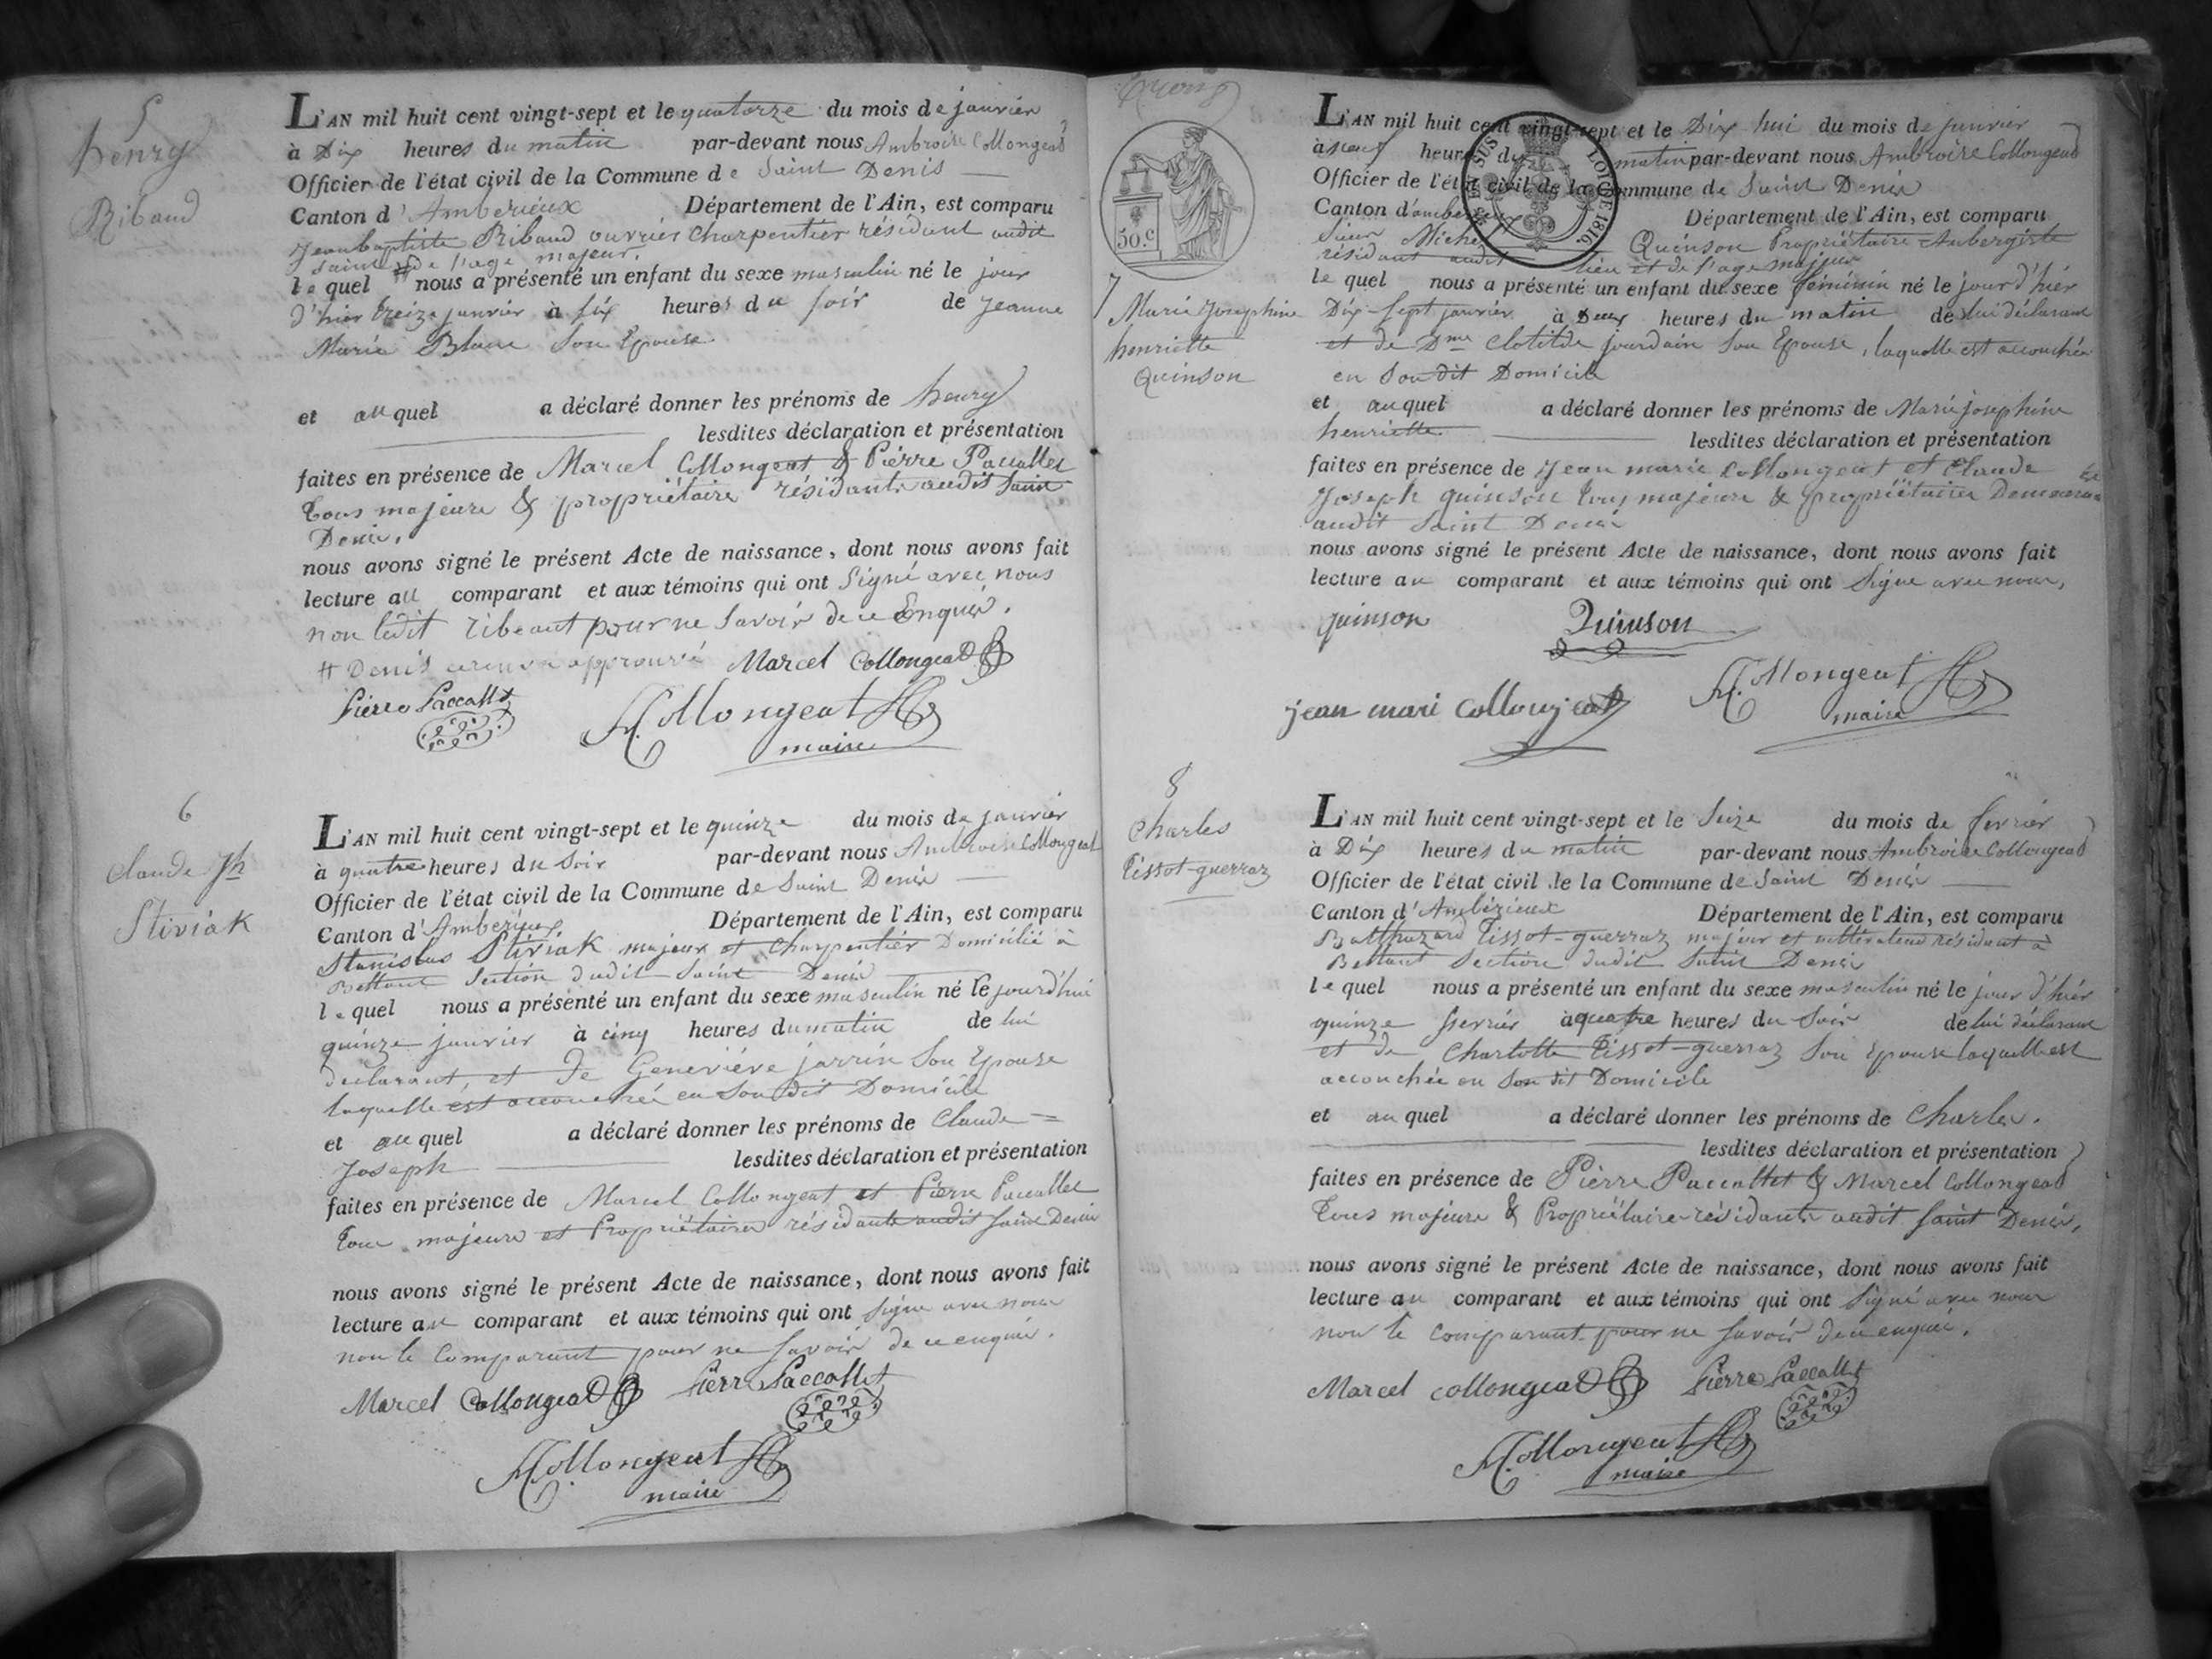 5
henry
Ribaud
L'AN mil huit cent vingt-sept et le quatorze du mois de janvier
à Dix heures du matin par-devant nous Ambroise Collongeat
Officier de l'état civil de la Commune de Saint Denis
Canton d'Amberieux Département de l'Ain, est comparu
Jeanbaptiste Ribaud ouvrier Charpentier résidant audit
Saint # de l'age majeur.
le quel nous a présenté un enfant du sexe masculin né le jour
d'hier treize janvier à six heures du soir de Jeanne
Marie Blanc son Epouse
et au quel a déclaré donner les prénoms de henry
lesdites déclaration et présentation
faites en présence de Marcel Collongeat & Pierre Paccallet
tous majeurs & propriétaire résidants audit Saint
Denis.
nous avons signé le présent Acte de naissance, dont nous avons fait
lecture au comparant et aux témoins qui ont signé avec nous
non ledit ribeaut pour ne savoir de ce Enquis.
# Denis approuvé Marcel Collongeat
Pierre Paccallet
A. Collongeat
maire
6
Claude Jh
Stiviak
L'AN mil huit cent vingt-sept et le quinze du mois de janvier
à quatre heures du soir par-devant nous Ambroise Collongeat
Officier de l'état civil de la Commune de Saint Denis
Canton d'Amberieux Département de l'Ain, est comparu
Stanislas Stiviak majeur et Charpentier Domicilié à
Bettant Section dudit Saint Denis
le quel nous a présenté un enfant du sexe masculin né le jourd'hui
quinze janvier à cinq heures du matin de lui
déclarant, et de Geneviève jarrin son Epouse
laquelle est accouchée en son dit Domicile
et au quel a déclaré donner les prénoms de Claude =
Joseph lesdites déclaration et présentation
faites en présence de Marcel Collongeat et Pierre Paccallet
tous majeurs et Propriétaires résidants audit Saint Denis
nous avons signé le présent Acte de naissance, dont nous avons fait
lecture au comparant et aux témoins qui ont signé avec nous
non le Comparant pour ne savoir de ce enquis.
Marcel Collongeat Pierre Paccallet
A. Collongeat
maire
50.C
LOI DE 1816.
7
Marie Josephine
henriette
Quinson
L'AN mil huit cent vingt-sept et le Dix hui du mois de janvier
à neuf heures du matin par-devant nous Ambroise Collongeat
Officier de l'état civil de la Commune de Saint Denis
Canton d'amberieux Département de l'Ain, est comparu
Sieur Michel Quinson Propriétaire Aubergiste
résidant audit lieu et de l'age majeur
le quel nous a présenté un enfant du sexe féminin né le jour d'hier
Dix-Sept janvier à Deux heures du matin de lui déclarant
et de Dme Clotilde jourdain son Epouse, laquelle est accouchée
en son dit Domicile
et au quel a déclaré donner les prénoms de Marie josephine
henriette lesdites déclaration et présentation
faites en présence de Jean marie Collongeat et Claude
Joseph quinson tous majeurs & propriétaires
audit Saint Denis
nous avons signé le présent Acte de naissance, dont nous avons fait
lecture au comparant et aux témoins qui ont signé avec nous,
quinson Quinson
jean mari Collongeat A. Collongeat
maire
8
Charles
Tissot-guerraz
L'AN mil huit cent vingt-sept et le Seize du mois de fevrier
à Dix heures du matin par-devant nous Ambroise Collongeat
Officier de l'état civil de la Commune de Saint Denis
Canton d'Ambérieux Département de l'Ain, est comparu
Balthazard Tissot-guerraz majeur et résidant à
Bettant Section dudit Saint Denis
le quel nous a présenté un enfant du sexe masculin né le jour d'hier
quinze fevrier à quatre heures du soir de lui déclarant
et de Charlotte Tissot-guerraz son Epouse laquelle est
accouchée en son dit Domicile
et au quel a déclaré donner les prénoms de Charles.
lesdites déclaration et présentation
faites en présence de Pierre Paccallet & Marcel Collongeat
tous majeurs & Propriétaire résidants audit Saint Denis,
nous avons signé le présent Acte de naissance, dont nous avons fait
lecture au comparant et aux témoins qui ont signé avec nous
non le Comparant pour ne savoir de ce enquis.
Marcel Collongeat Pierre Paccallet
A. Collongeat
maire